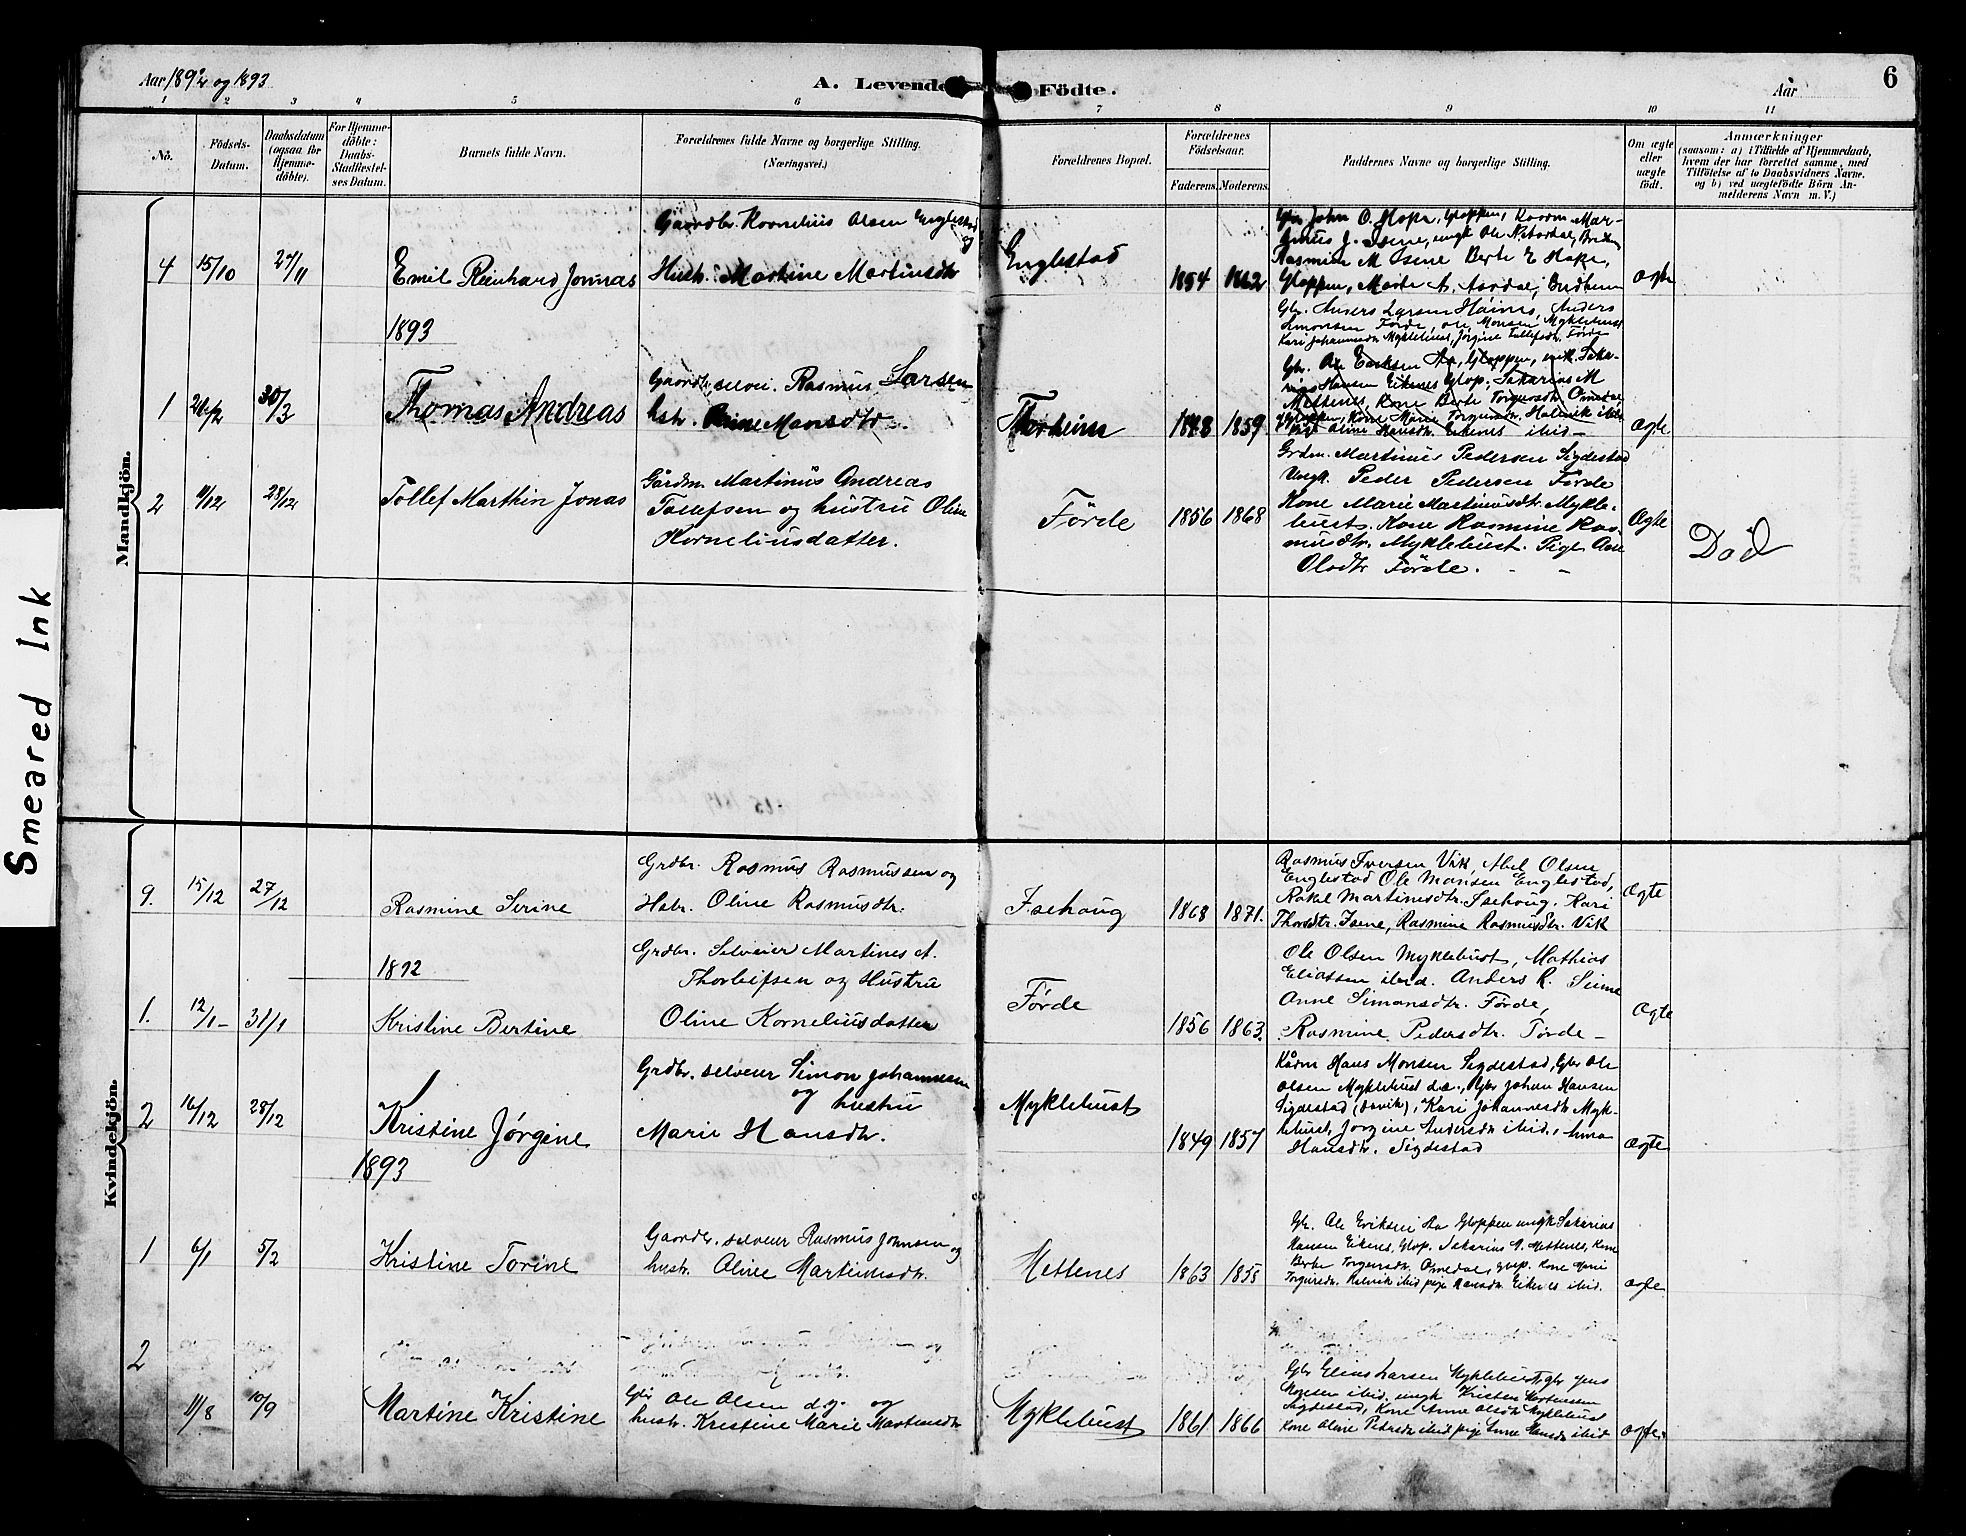 Smeared Ink
Aar 1892 og 1893
A. Levende Födte.
Aar
6
1 2 3 4 5 6 7 8 9 10 11
No.
Födsels-
Datum.
Daabsdatum
(ogsaa for
Hjemme-
döbte).
For Hjemme-
döbte:
Daabs-
Stadfæstel-
ses Datum.
Barnets fulde Navn.
Forældrenes fulde Navne og borgerlige Stilling.
(Næringsvei.)
Forældrenes Bopæl.
Forældrenes
Födselsaar.
Faderens. Moderens.
Faddernes Navne og borgerlige Stilling.
Om ægte
eller
uægte
födt.
Anmærkninger
(saasom: a) i Tilfælde af Hjemmedaab,
hvem der har forrettet samme, med
Tilföielse af to Daabsvidners Navne,
og b) ved uægtefödte Börn An-
melderens Navn m. V.)
Mandkjön.
4 15/10
Emil Reinhard Jonnas
Gaardbr. Kornelius Olsen Englestad
og
Hustr. Martine Martinsdtr
Englestad
1854 1862
John O. Hope, Gloppen,
Rasmus M Osene Berte E Hope,
Gloppen,
ægte
1893
Anders Larsen Anders
Simonsen Förde, Ole Monsen Myklebust
Kari Johannesdtr Myklebust, Jörgine Tollefsdtr. Förde
1 30/3
Thomas Andreas
Gaardbr. selvei. Rasmus Larsen
hstr. Anne Monsdtr.
1848 1859
Gbr. Ole Eriksen Aa, Gloppen, unk. Saka-
rias Hansen Eikenes Glop. Sakarias M
Mettenes, Kone Berte Torgersdtr. Omedal,
Gloppen, Kone Marie Torgersdtr.
Oline Hansdtr. Eikenes ibid
ægte
2 11/12 28/12
Tollef Marthin Jonas
Gårdm. Martinus Andreas
Tollefsen og hustru Oline
Korneliusdatter.
Förde
1856 1868
Grdm. Martinus Pedersen Sigdestad
Ungk. Peder Pedersen Förde
Kone Marie Martinusdtr. Mykle-
bust. Kone Rasmine Ras-
musdtr. Myklebust. Pige Ane
Olsdtr Förde.
Ægte
Död
Kvindekjön.
9. 15/12 27/12
Rasmine Serine
Grdbr. Rasmus Rasmussen og
Hstr. Oline Rasmusdtr.
Isehoug
1868 1871.
Rasmus Iversen Vik, Abel Olsen
Englestad Ole Monsen Englestad,
Rakel Martinesdtr. Isehoug, Kari
Thorsdtr. Isene, Rasmine Rasmusdtr. Vik
Ægte
1892
1. 12/1- 31/1
Kristine Bertine
Grdbr. Selveier Martines A.
Thorleifsen og Hustru
Oline Korneliusdatter
Förde
1856 1863.
Ole Olsen Myklebust, Mathias
Eliassen ibid. Anders R. Seime
Anne Simonsdtr. Förde,
Rasmine Pedersdtr. Förde-
Ægte
2 16/12 28/12
Kristine Jørgine
Grdbr. selveier Simon Johannesen
og hustru
Marie Hansdtr.
Myklebust
1849 1857
Hans Monsen Sigdestad, Gbr Ole
Olsen Myklebust Johan Hansen
Sigdestad (Davik), Kari Johannesdtr Myk-
lebust, Jorgine Andersdtr ibid.,
Hansdtr. Sigdestad
ægte
1893
1 6/1 5/2
Kristine Torine
Gaardbr. selveier Rasmus Johnsen og
hustr. Oline Martinusdtr.
Mettenes
1863 1855
Gbr. Ole Eriksen Aa Gloppen ungk Sakarias
Hansen Eikenes, Glop. Sakarias M. Mettenes, Kone
Berte Torgersdtr. Omedal, Glop. Kone Marie
Torgersdtr. ibid pige Hansdtr Eikenes ibid.
ægte
2
11/8 10/9
Martine Kristine
Gbr Ole Olsen d.y. og
hustr. Kristine Marie Martensdtr
Myklebust
1861 1866
Gbr Elias Larsen Myklebust, Gbr Jens
Monsen ibid, ungk Kristen Mortensen
Sigdestad, Kone Anne Olsdtr Myklebust
Kone Oline Pedersdtr ibid pige Anne Hansdtr ibid
ægte.